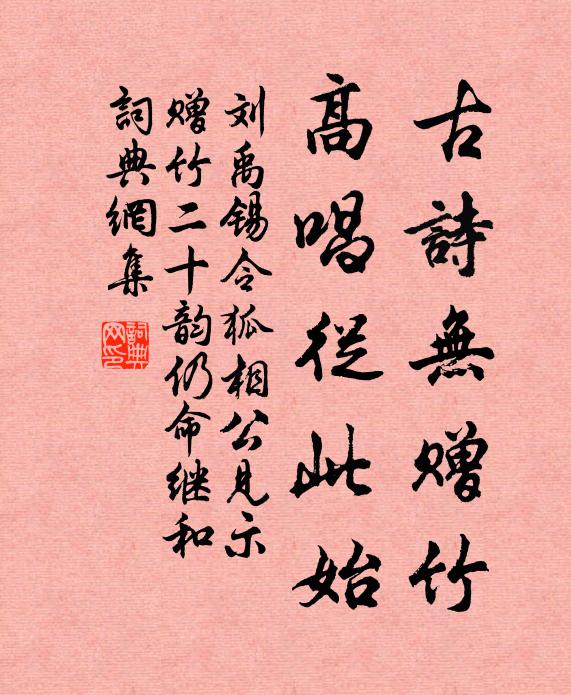 古詩無赠竹
高唱從此始
刘禹锡令狐相公见示
赠竹二十韵仍命继和
詞典網集
詞典
网印